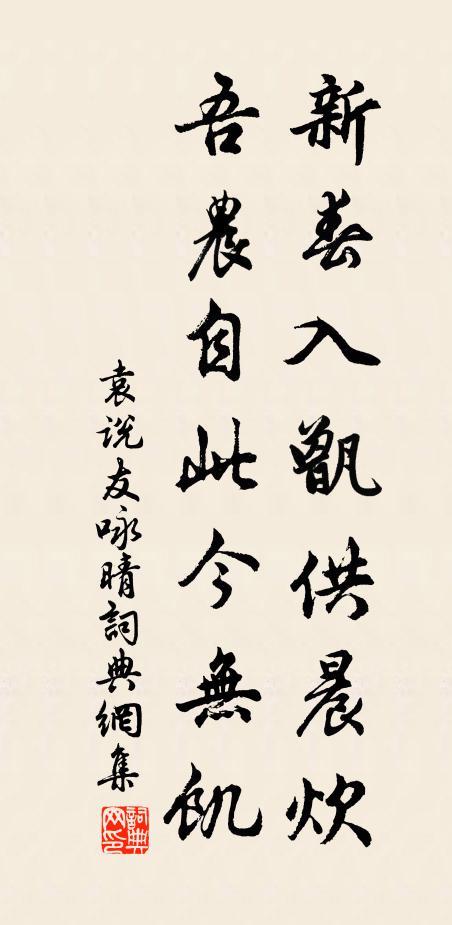 新舂入甑供晨炊
吾農自此今無飢
袁说友咏晴詞典網集
詞典网印